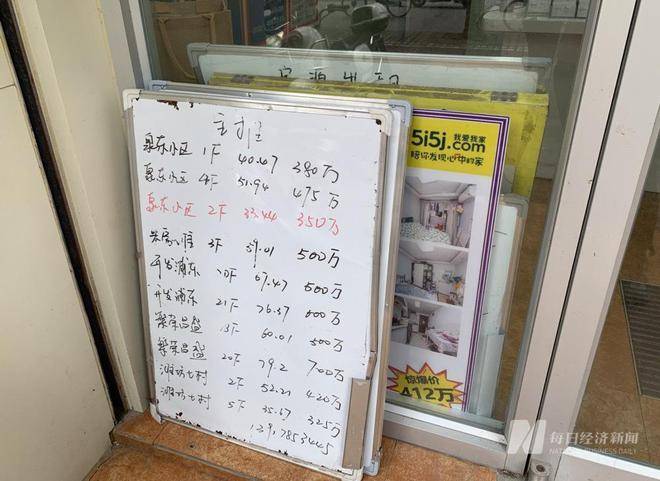 主推
泉东小区 1F 40.07 380万
泉东小区 4F 51.94 475万
泉东小区 2F 33.44 350万
3F 59.01 500万
开发浦东 10F 67.47 500万
开发浦东 21F 76.37 600万
繁荣昌盛 13F 60.01 500万
繁荣昌盛 20F 79.2 700万
潍坊七村 2F 52.21 420万
潍坊七村 5F 35.57 325万
房源出租
5i5j.com
我爱我家
陪你发现心中的家
惊爆价
412万
每日经济新闻
NATIONAL BUSINESS DAILY